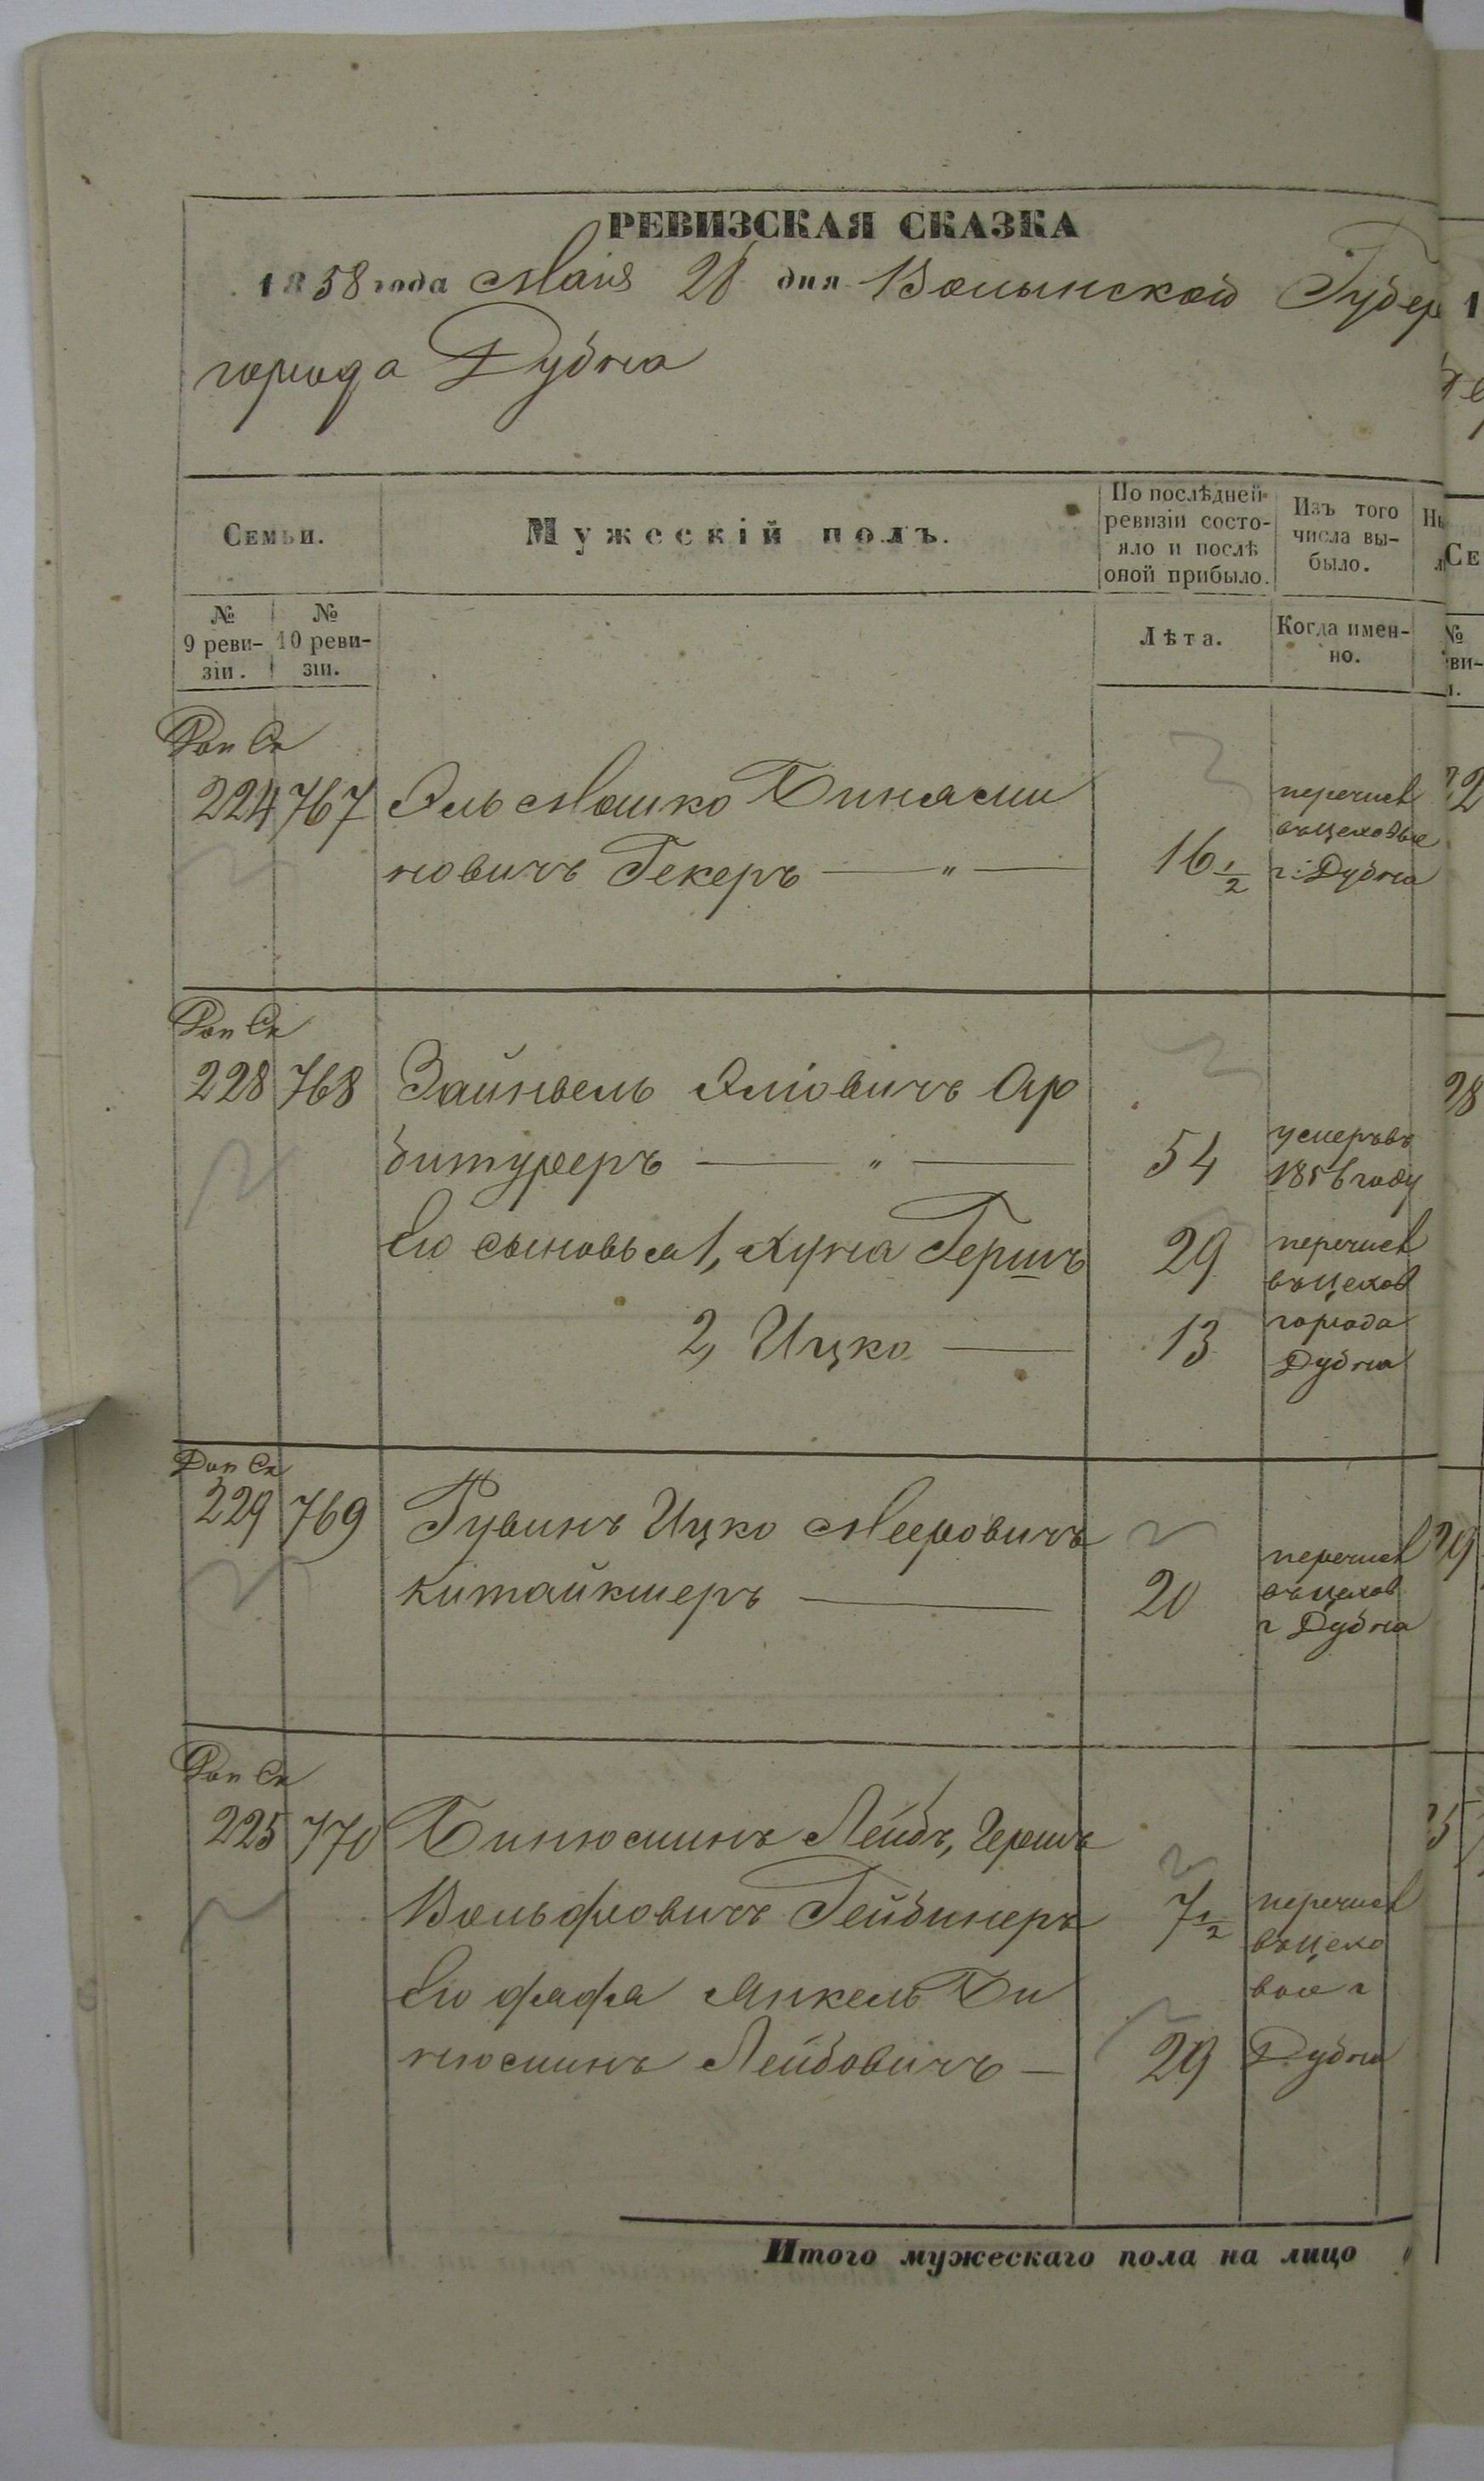 РЕВИЗСКАЯ СКАЗКА
1858 года Маія 28 дня Волынской Губер
города Дубна
Семьи.
Мужескій полъ.
По послѣдней ревизіи состо-
яло и послѣ
оной прибыло.
Изъ того
числа вы-
было.
№
9 реви-
зіи.
№
10 реви-
зіи.
Лѣта.
Когда имен-
но.
Доп Ск
224 767 Эль Мошко Бинями
новичъ Гекеръ — „ — 16 1/2
перечисл
въ цеховые
г: Дубна
Доп Ск
228 768 Зайнвель Эліовичъ Ар
битуреръ — „ — 54
умеръ въ
1856 году
Его сыновья 1, Хуна Гершъ 29
2, Ицко — 13
перечисл
въ цехов
города
Дубна
Доп Ск
229 769 Рувинъ Ицко Мееровичъ
Китайкшеръ — 20
перечисл
въ цехов
г Дубна
Доп Ск
225 770 Бинюминъ Лейбъ, Гершъ
Вольфовичъ Гейбинеръ 7 1/2
Его дядя Янкель Би
нюминъ Лейбовичъ — 29
перечисл
въ цехо
вые г
Дубна
Итого мужескаго пола на лицо